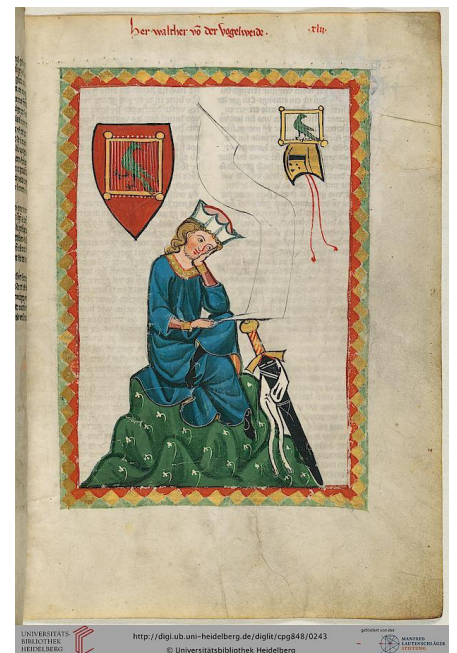 her walther võ der Vogelweide. .xlii.
UNIVERSITÄTS-
BIBLIOTHEK
HEIDELBERG
http://digi.ub.uni-heidelberg.de/diglit/cpg848/0243
© Universitätsbibliothek Heidelberg
gefördert von der
MANFRED
LAUTENSCHLÄGER
STIFTUNG